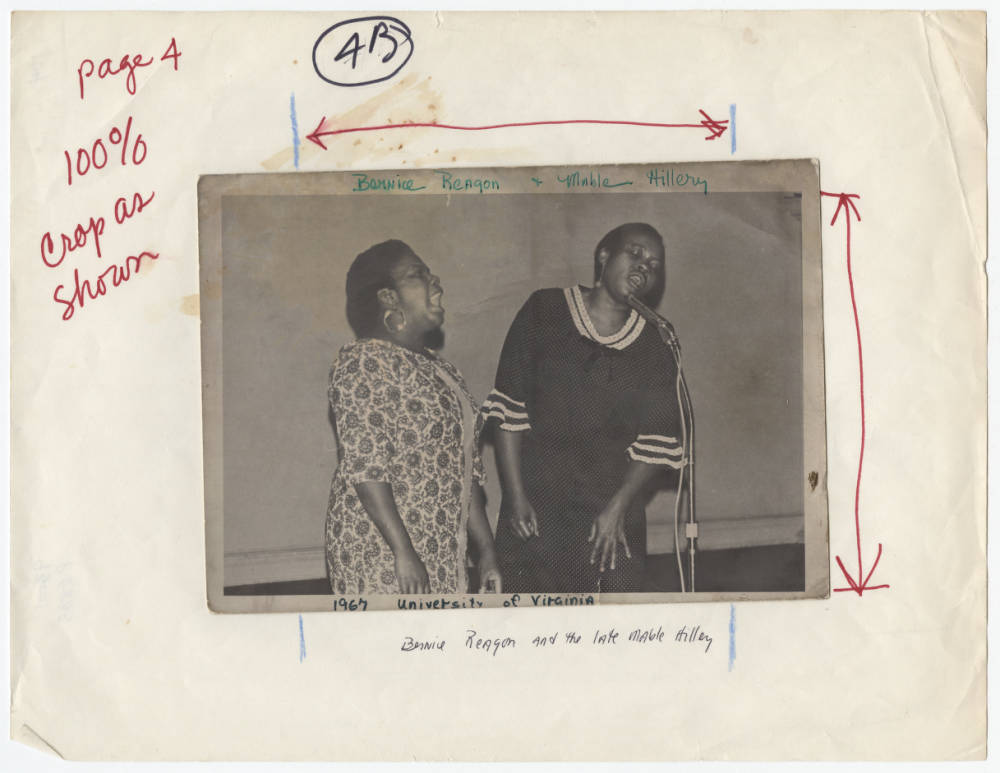 page 4
4B
100%
Crop as
shown
Bernice Reagon + Mable Hillery
1967 University of Virginia
Bernice Reagon and the late Mable Hillery